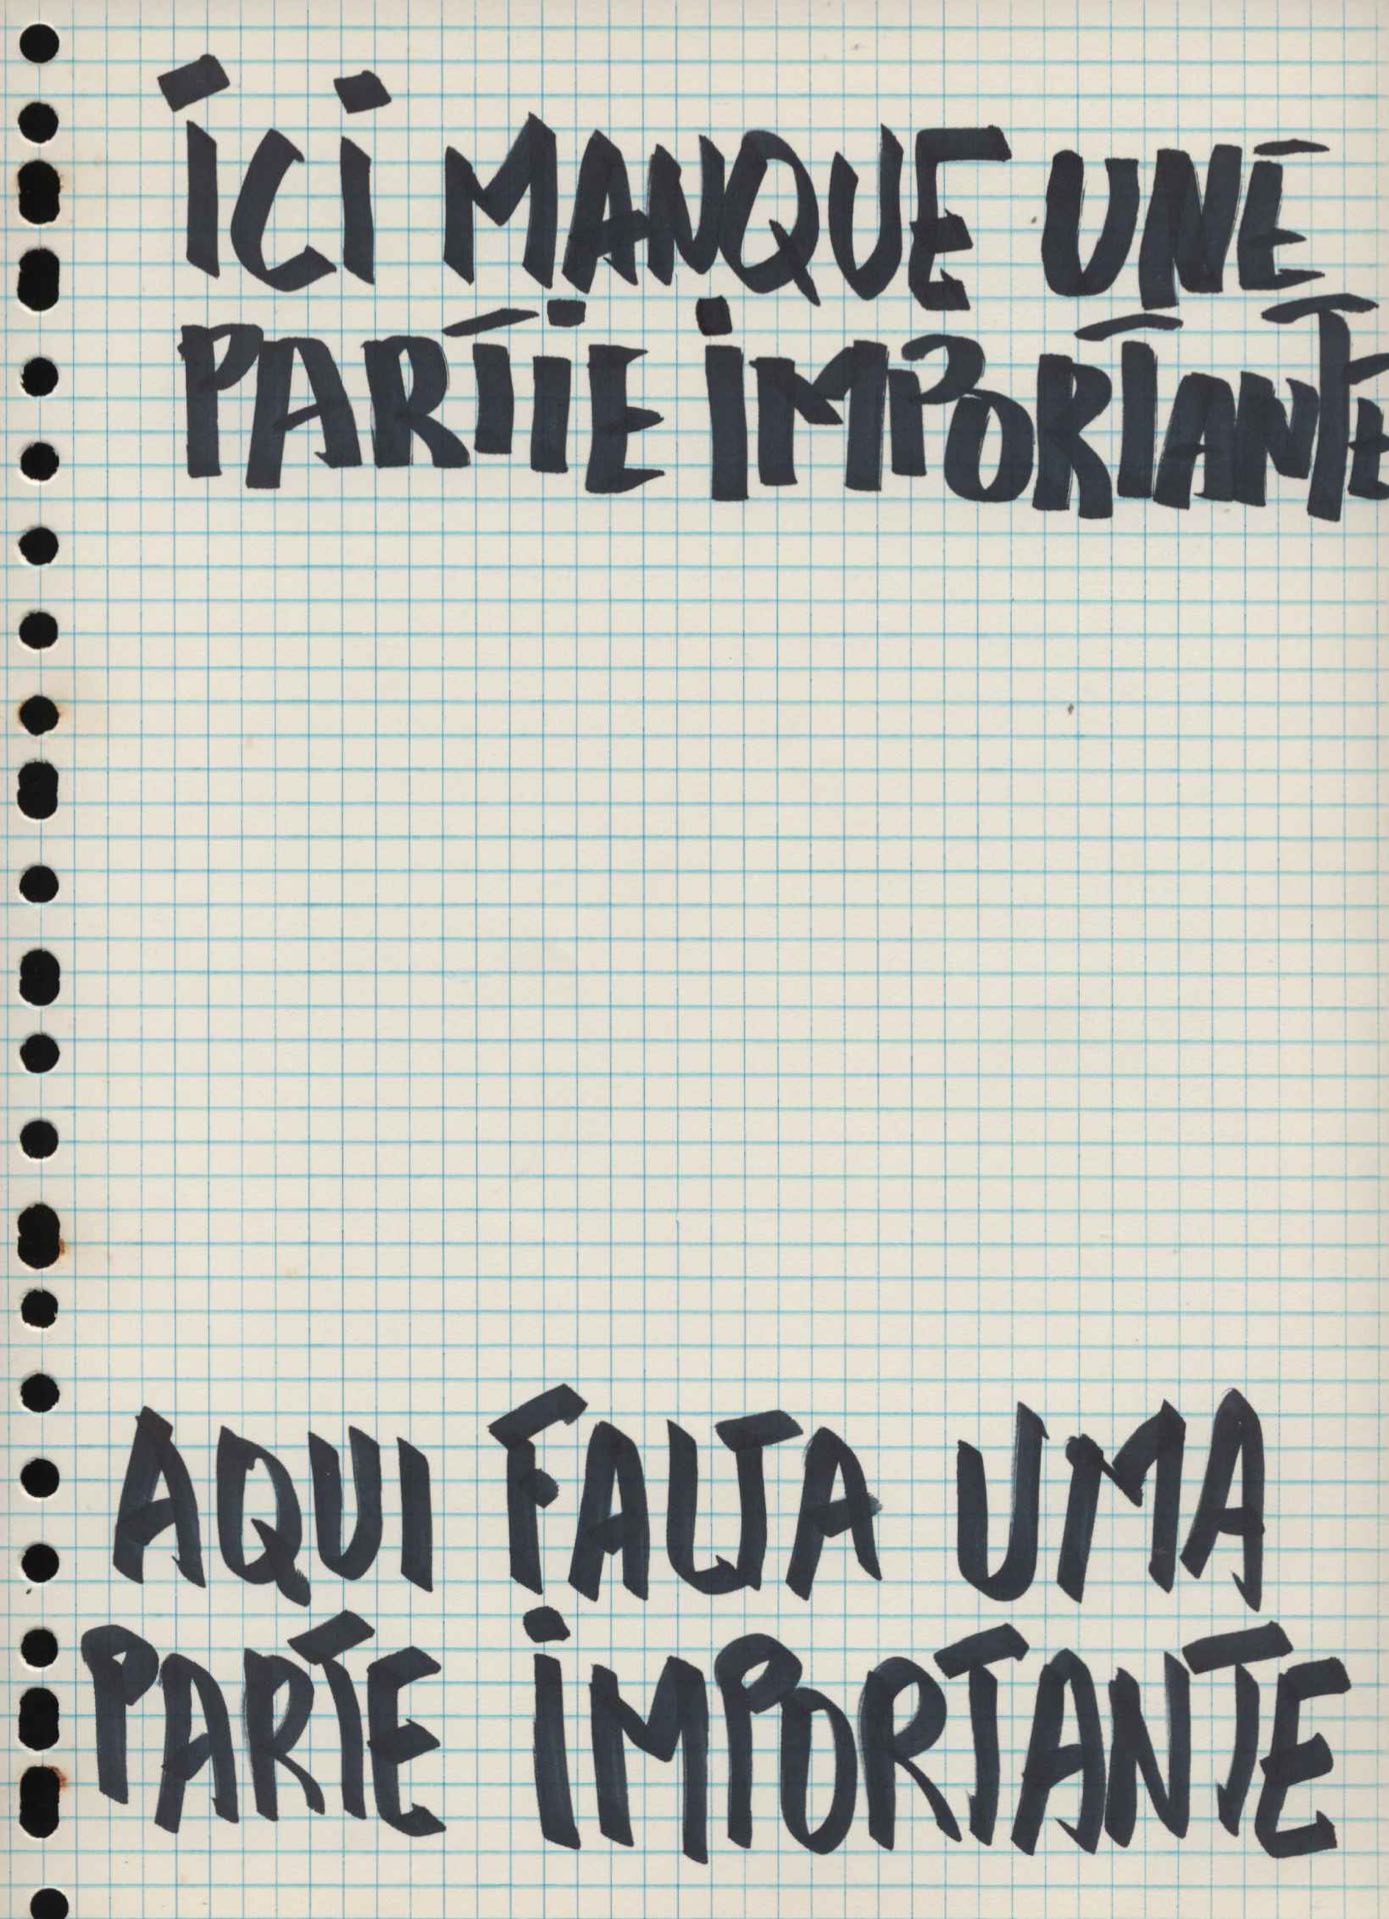 ICI MANQUE UNE
PARTIE IMPORTANTE
AQUI FALTA UMA
PARTE IMPORTANTE